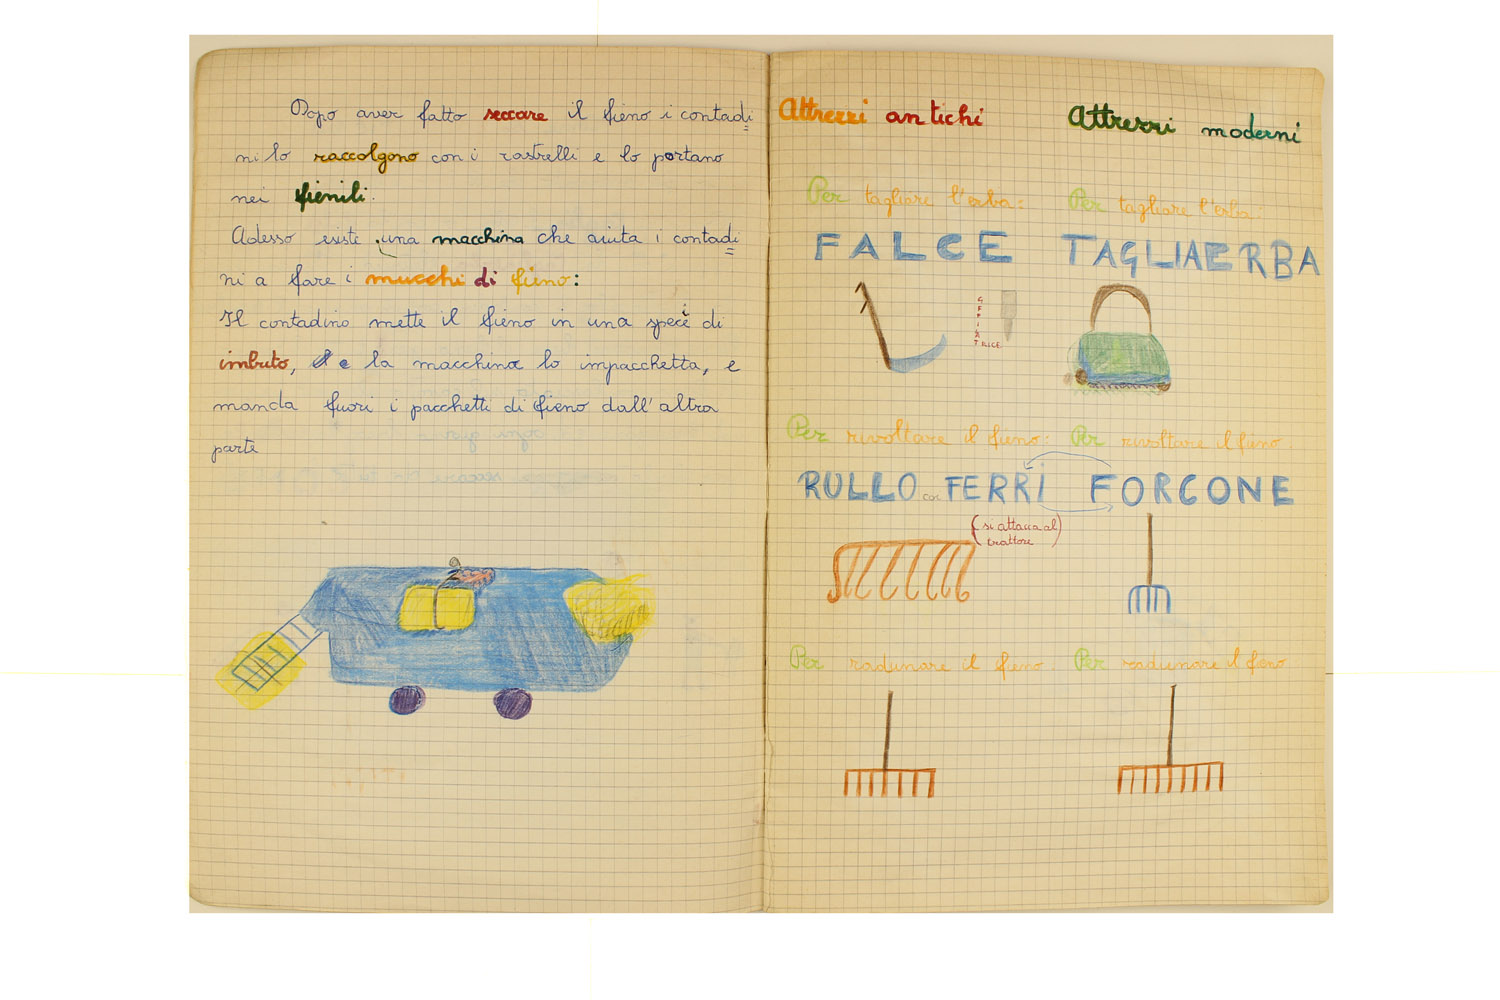 Dopo aver fatto seccare il fieno i contadi
ni lo raccolgono con i rastrelli e lo portano
nei fienili.
Adesso esiste una macchina che aiuta i contadi
ni a fare i mucchi di fieno:
Il contadino mette il fieno in una specie di
imbuto, e la macchina lo impacchetta, e
manda fuori i pacchetti di fieno dall'altra
parte
Attrezzi antichi
Per tagliare l'erba:
FALCE
Per rivoltare il fieno:
RULLO con FERRI
(si attacca al
trattore)
Per radunare il fieno:
Attrezzi moderni
Per tagliare l'erba:
TAGLIAERBA
Per rivoltare il fieno.
FORCONE
Per radunare il fieno